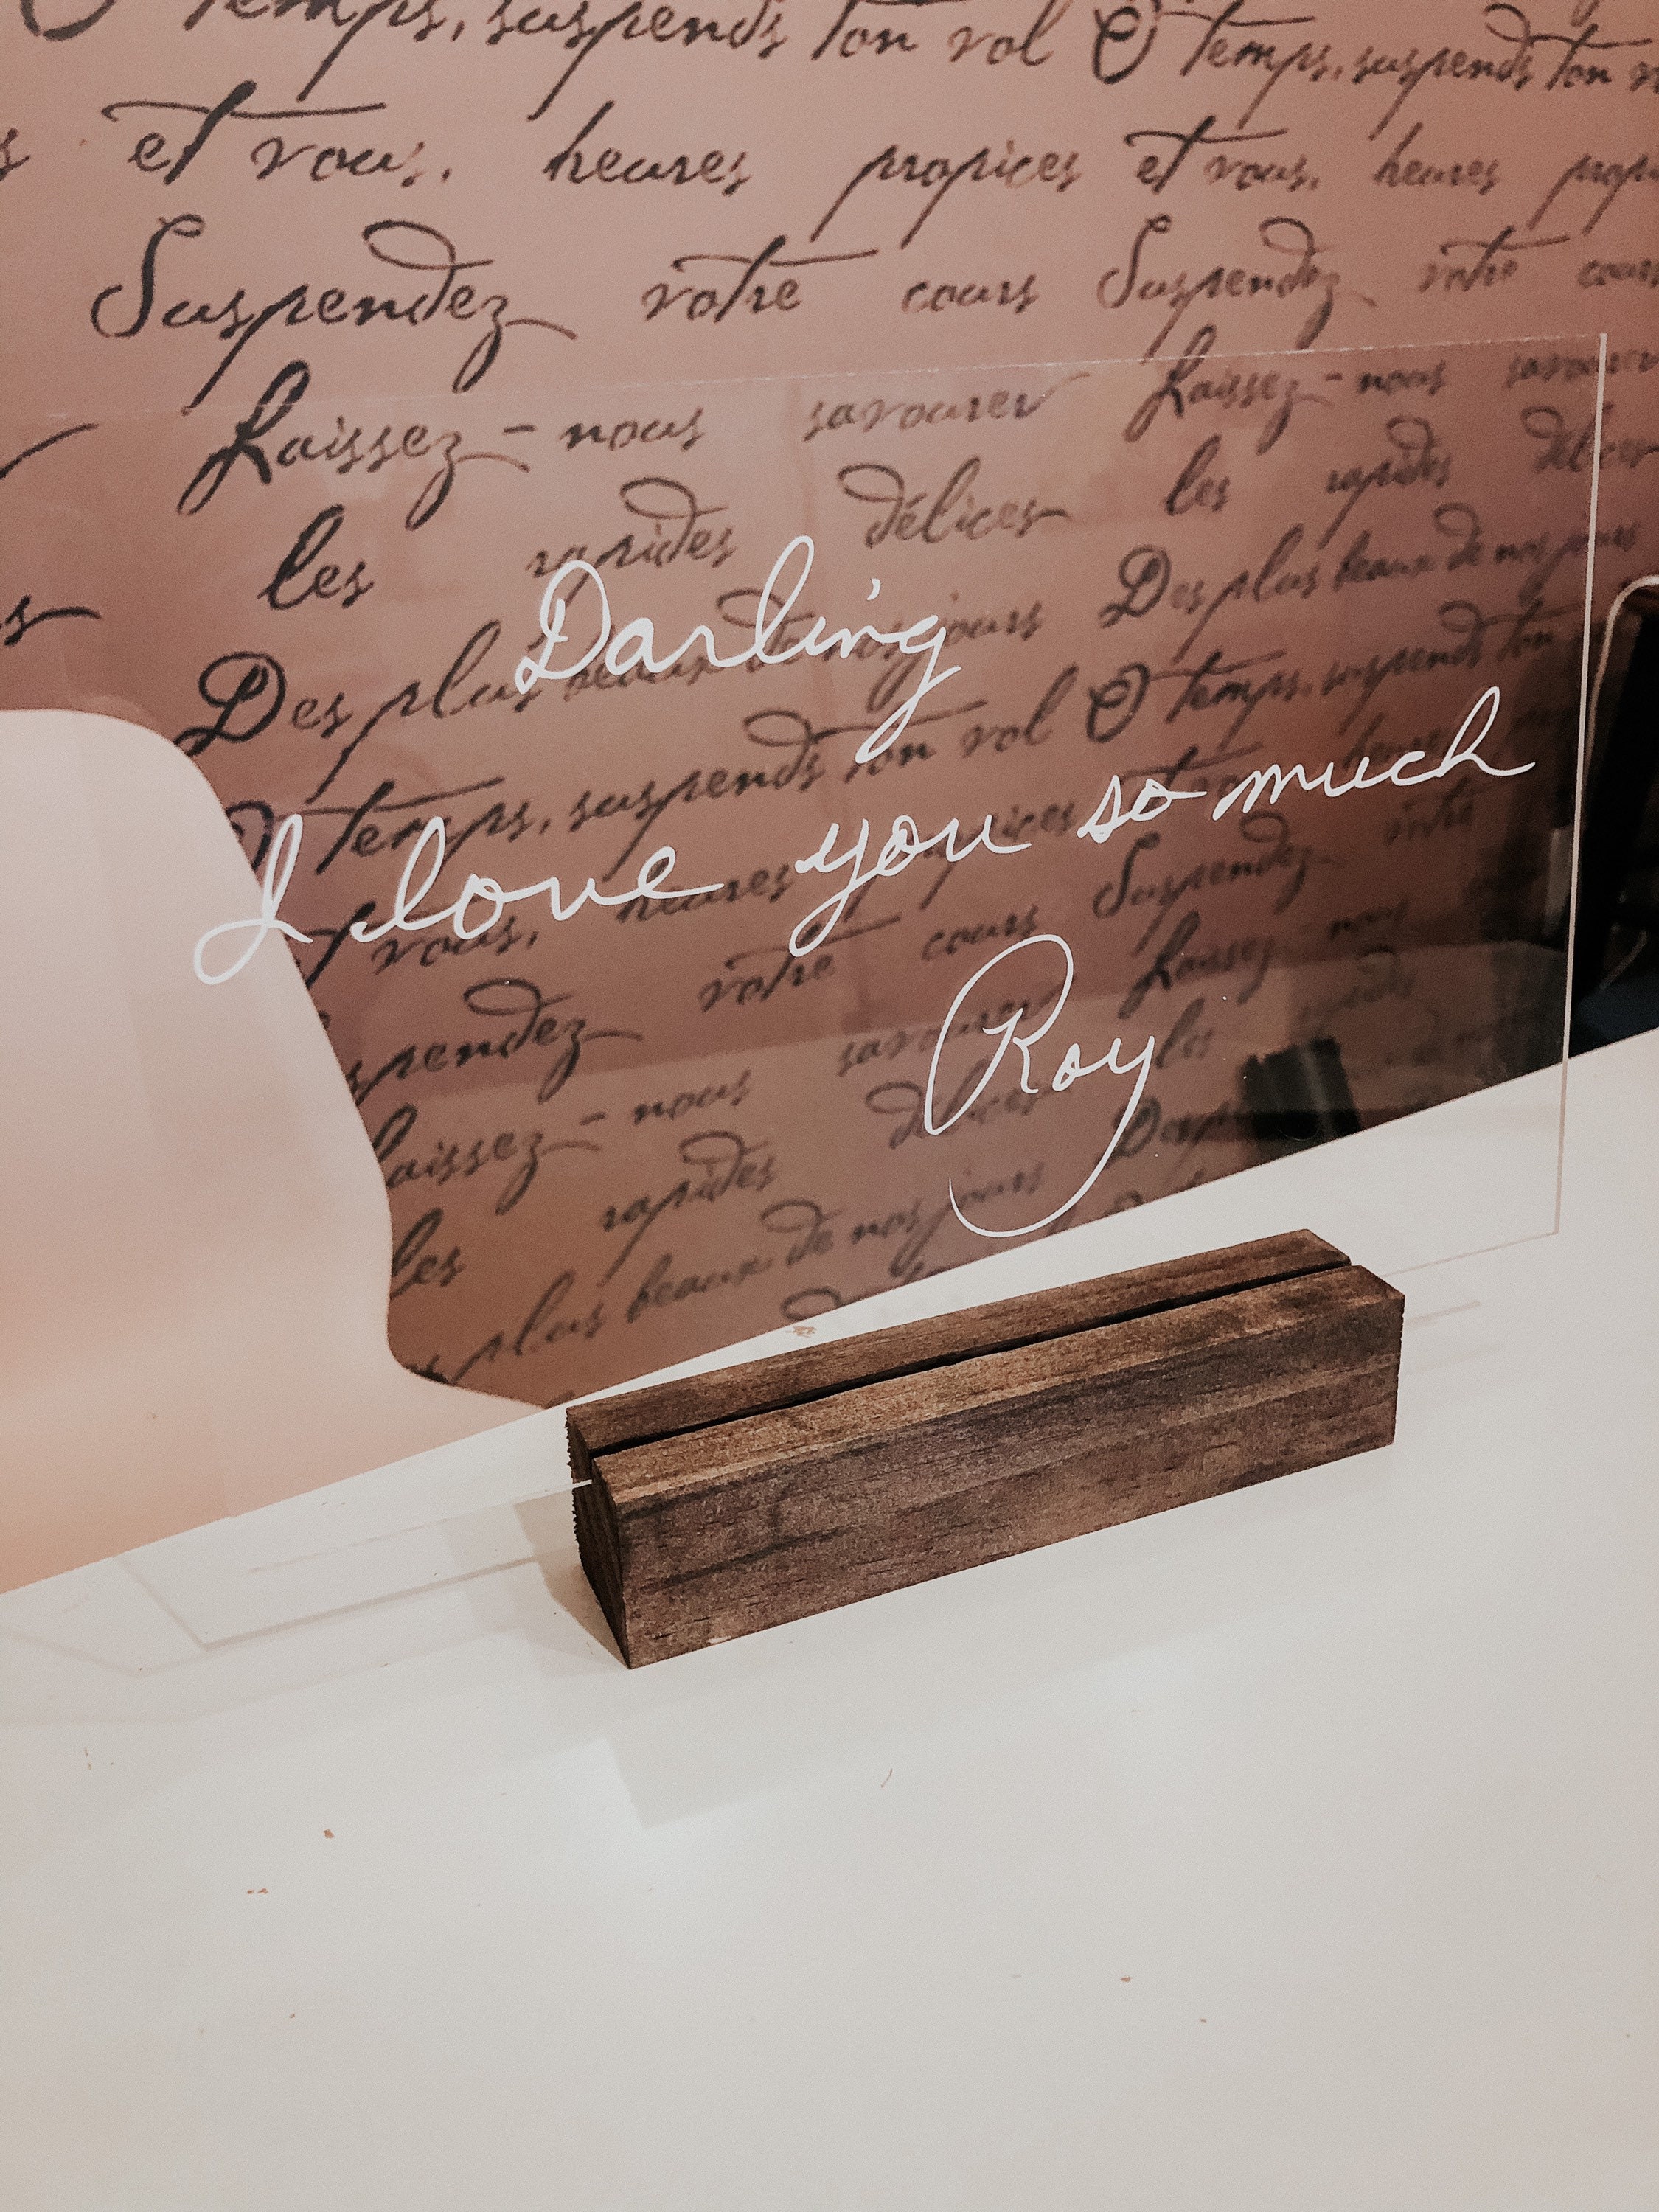 temps, suspends ton vol Ô temps, suspends ton
et vous, heures propices et vous, heures
Suspendez votre cours Suspendez votre cours
Laissez-nous savourer Laissez-nous savourer
les rapides délices les rapides délices
Des plus beaux de nos jours Des plus beaux de nos jours
Ô temps, suspends ton vol Ô temps, suspends ton
vous, heures propices
votre cours Suspendez votre
Laissez-nous savourer Laissez-nous
les rapides délices les
plus beaux de nos jours Des
Darling
I love you so much
Roy